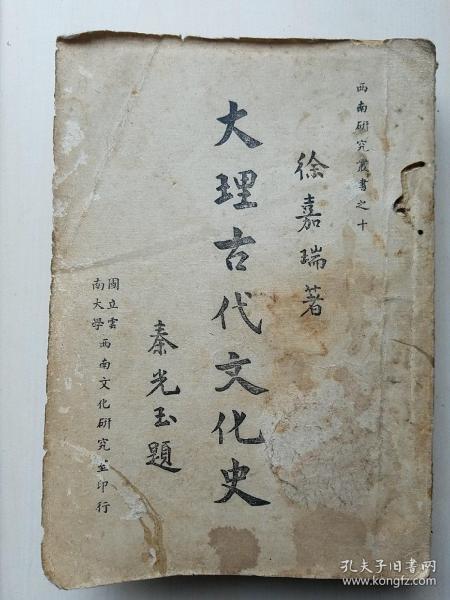 西南研究叢書之十
徐嘉瑞著
大理古代文化史
秦光玉題
國立雲
南大學
西南文化研究室印行
孔夫子旧书网
www.kongfz.com